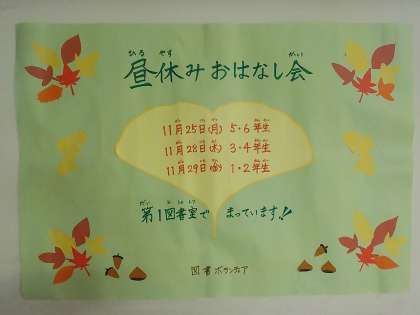 昼休みおはなし会
11月25日(月) 5・6年生
11月28日(木) 3・4年生
11月29日(金) 1・2年生
第1図書室で まっています!!
図書ボランティア